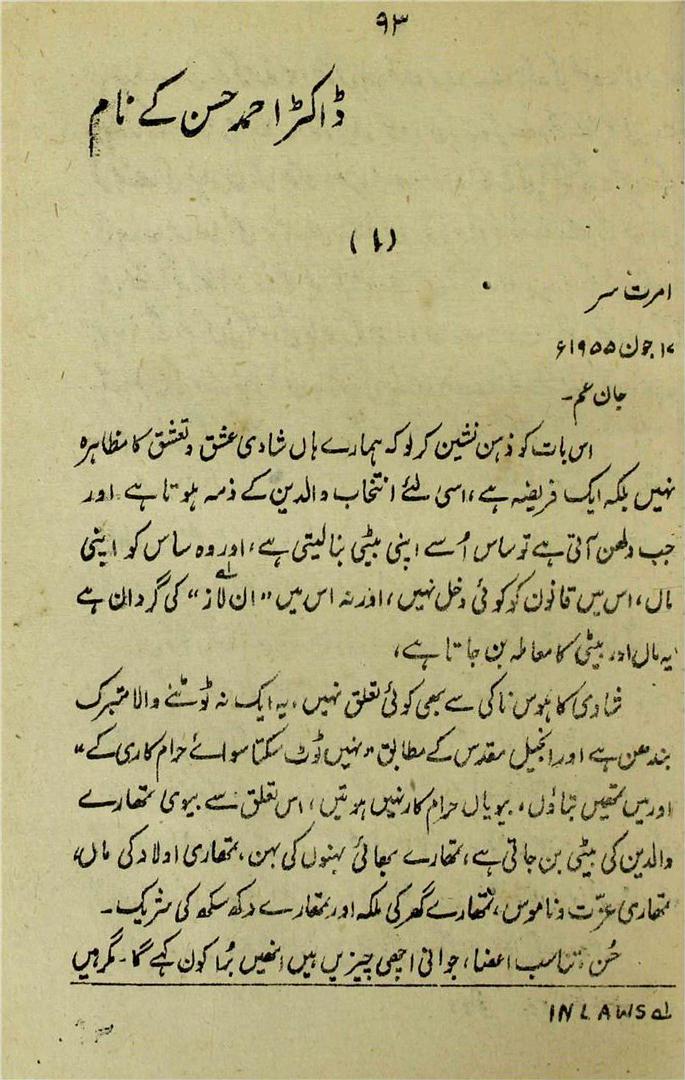 ۹۳
ڈاکٹر احمد حسن کے نام
(۱)
امرت سر
۱۷ جون ۱۹۵۵ء
جان عم۔
اس بات کو ذہن نشین کر لو کہ ہمارے ہاں شادی عشق و تعشق کا مظاہرہ
نہیں بلکہ ایک فریضہ ہے، اسی لئے انتخاب والدین کے ذمہ ہوتا ہے اور
جب دلھن آتی ہے تو ساس اُسے اپنی بیٹی بنا لیتی ہے، اور وہ ساس کو اپنی
ماں، اس میں قانون کو کوئی دخل نہیں، اور نہ اس میں "ان لاز" لہ کی گردان ہے
یہ ماں اور بیٹی کا معاملہ بن جاتا ہے،
شادی کا ہوس ناکی سے بھی کوئی تعلق نہیں، یہ ایک نہ ٹوٹنے والا متبرک
بندھن ہے اور انجیل مقدس کے مطابق "نہیں ٹوٹ سکتا سوائے حرام کاری کے"
اور میں تمھیں بتاؤں، بیویاں حرام کار نہیں ہوتیں، اس تعلق سے بیوی تمھارے
والدین کی بیٹی بن جاتی ہے، تمھارے بھائی بہنوں کی بہن، تمھاری اولاد کی ماں،
تمھاری عزّت و ناموس، تمھارے گھر کی ملکہ اور تمھارے دکھ سکھ کی شریک۔
حُسن، تناسب اعضا، جوانی اچھی چیزیں ہیں انھیں بُرا کون کہے گا۔ مگر ہیں
لہ IN LAWS